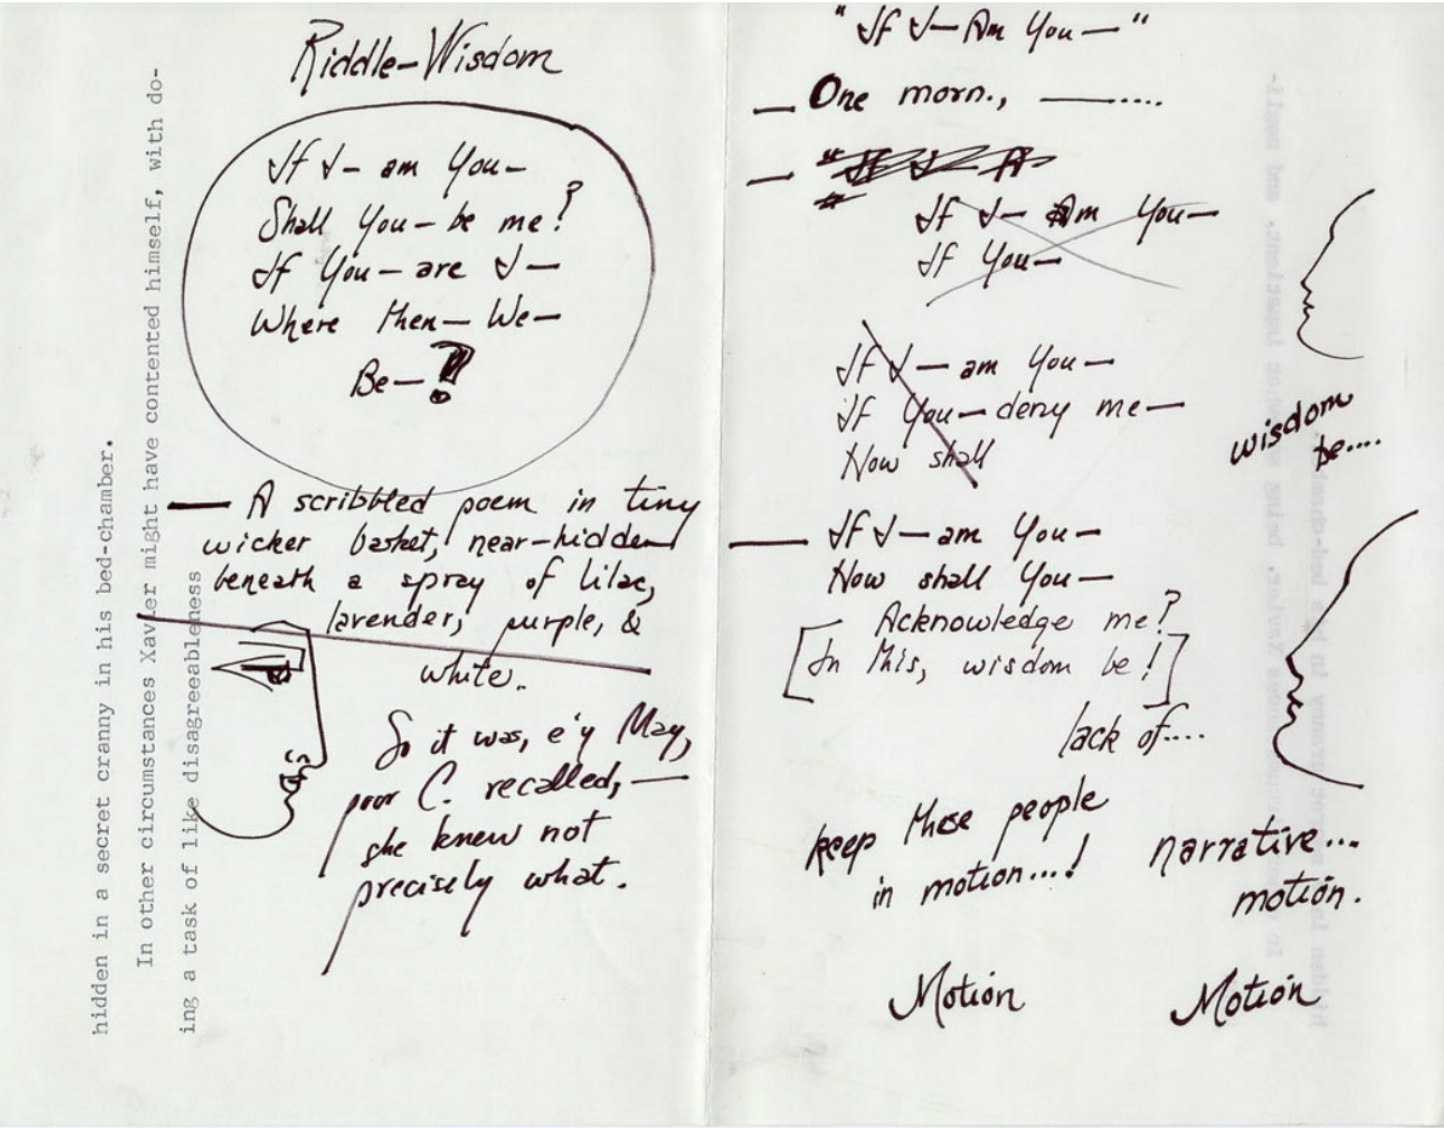 Riddle-Wisdom
If I- am You-
Shall You- be me?
If You- are I-
Where then- We-
Be-?!
— A scribbled poem in tiny
wicker basket, near-hidden
beneath a spray of lilac,
lavender, purple, &
white.
So it was, e'y May,
poor C. recalled, —
she knew not
precisely what.
hidden in a secret cranny in his bed-chamber.
In other circumstances Xavier might have contented himself, with do-
ing a task of like disagreeableness
"If I- Am You-"
— One morn., —.....
— "If I- A
If I- Am You-
If You-
If I- am You-
If You- deny me-
How shall
wisdom
be....
— If I- am You-
How shall You-
Acknowledge me?
[In this, wisdom be!]
lack of....
keep these people
in motion...!
narrative...
motion.
Motion Motion